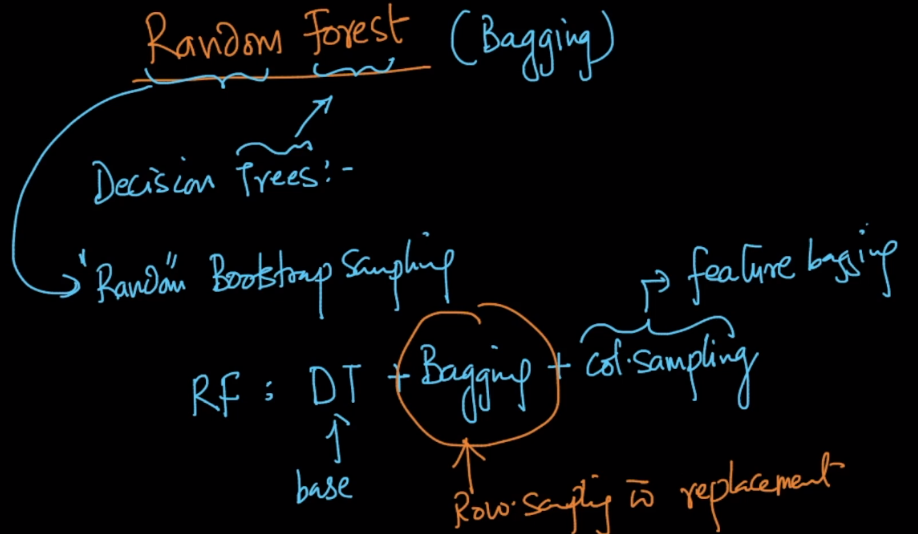 Random Forest (Bagging)
Decision Trees:-
"Random" Bootstrap Sampling
feature bagging
RF : DT + Bagging + col.sampling
base
Row.sampling w̄ replacement